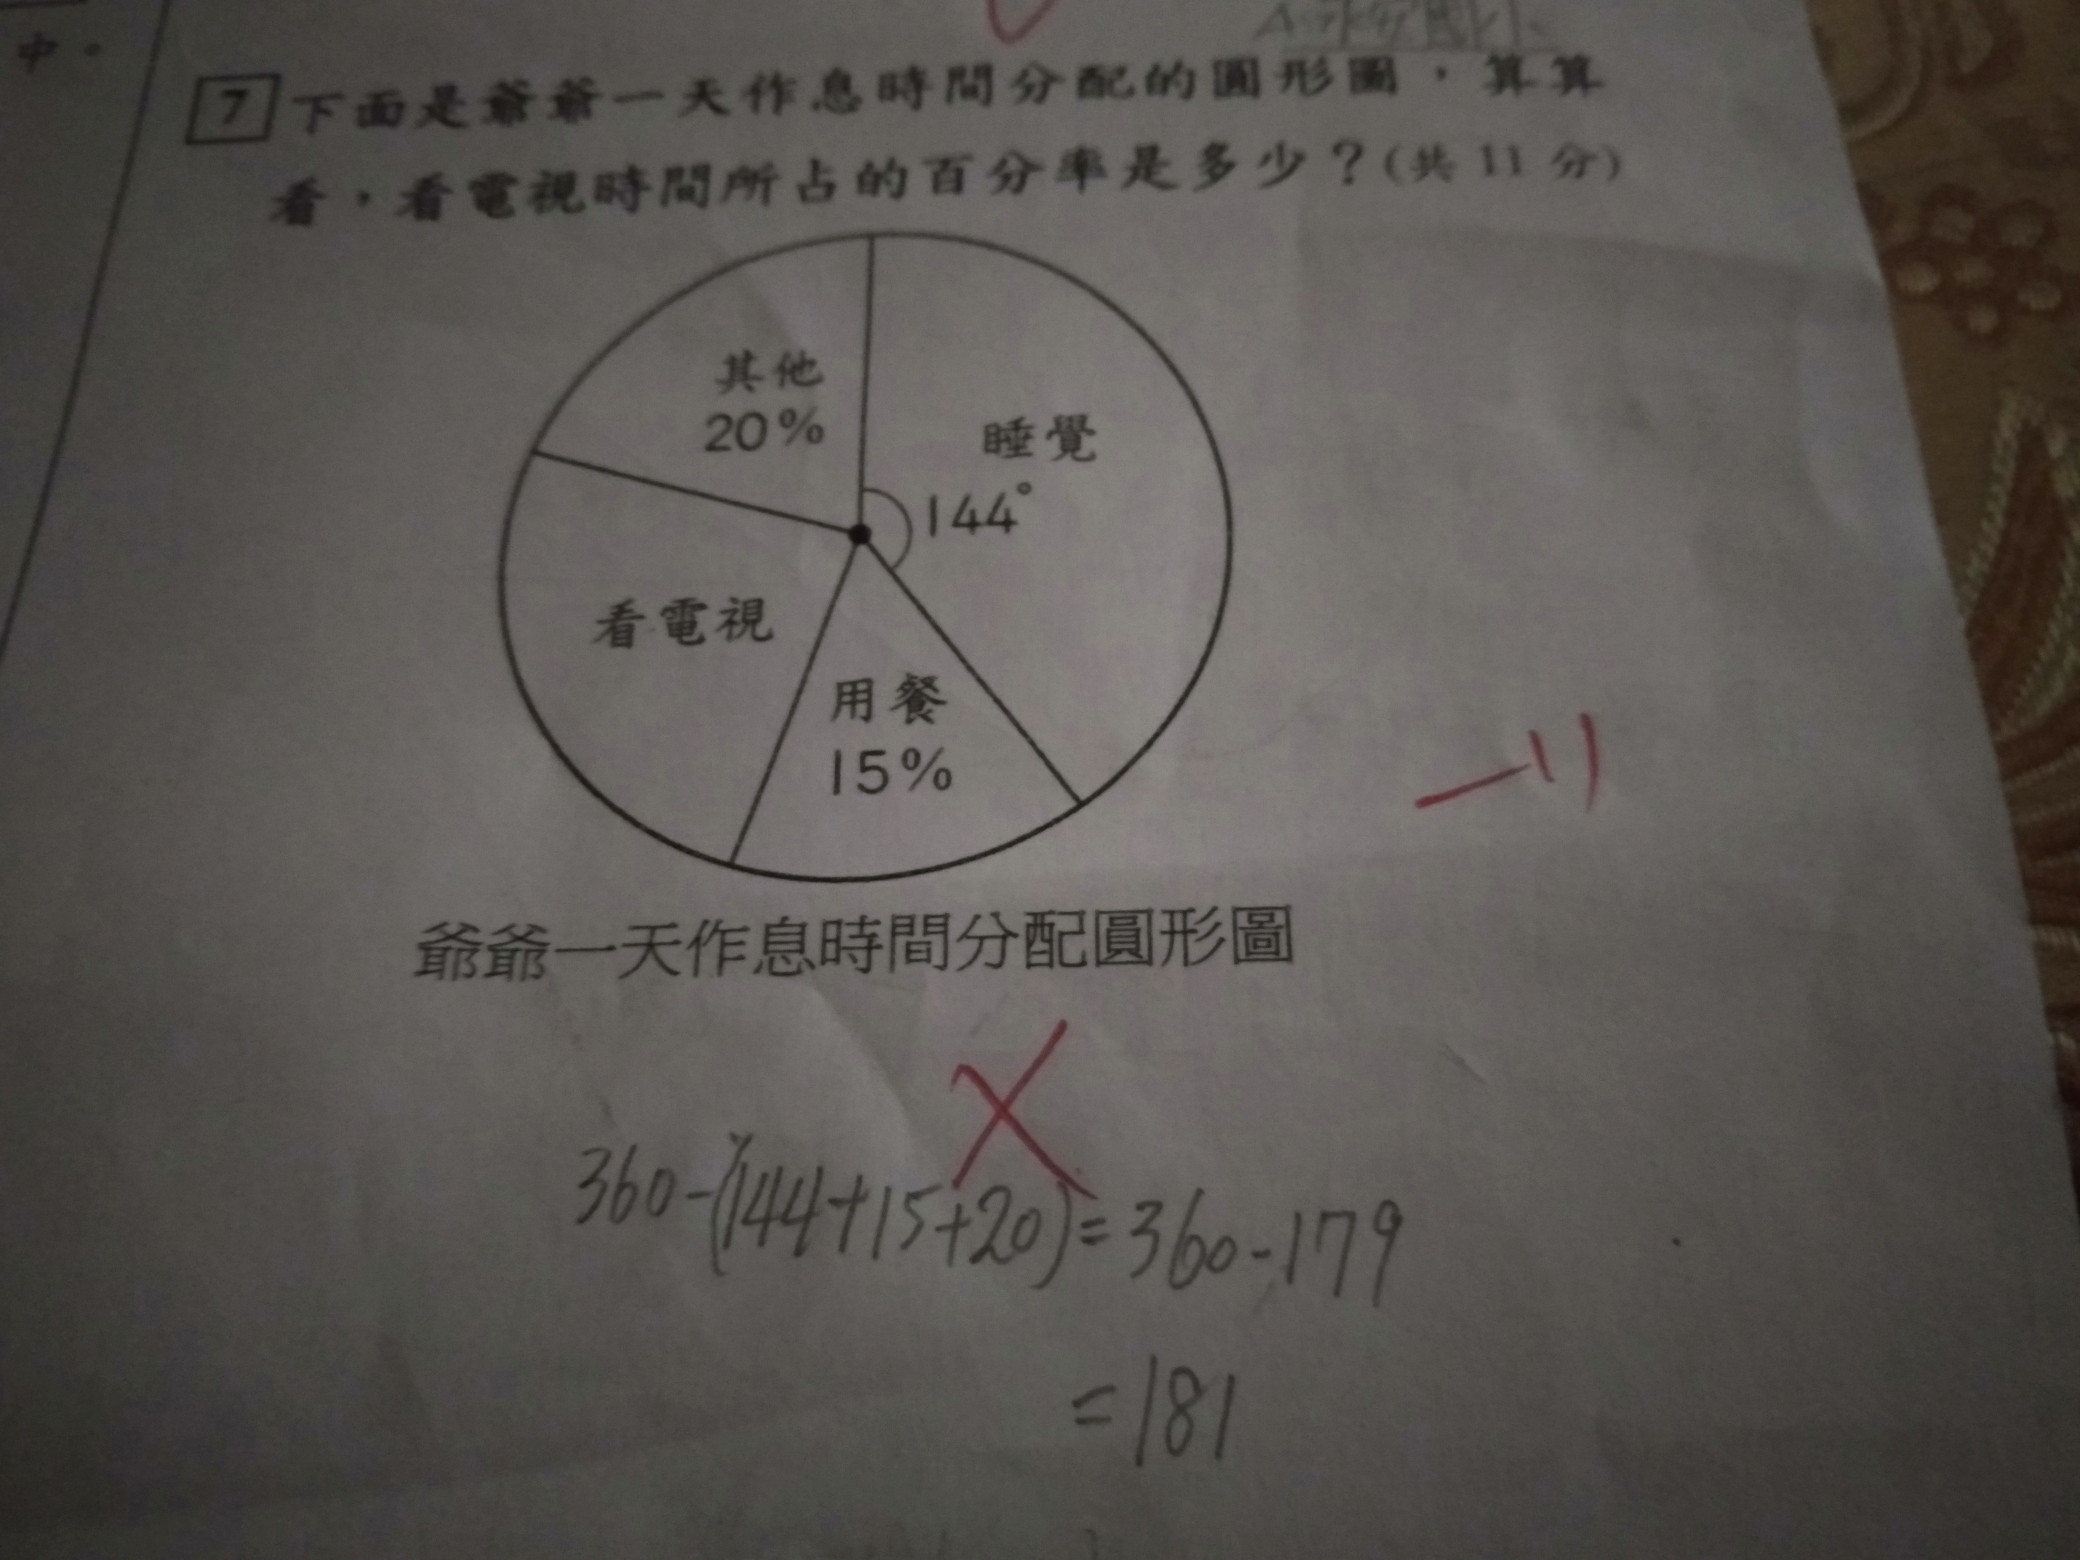 中。
7 下面是爺爺一天作息時間分配的圓形圖，算算
看，看電視時間所占的百分率是多少？(共 11 分)
其他
20%
睡覺
144°
看電視
用餐
15%
-11
爺爺一天作息時間分配圓形圖
360-(144+15+20)=360-179
=181